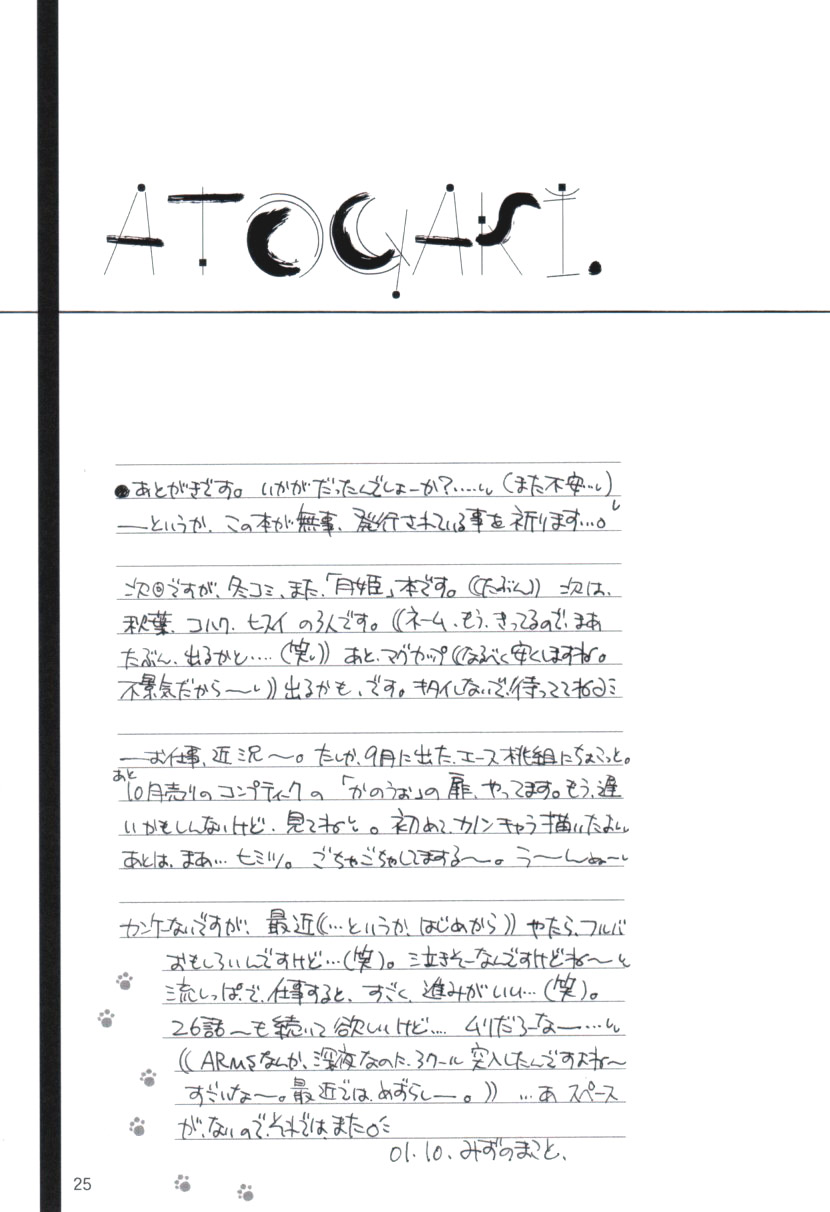 ATOGAKI.
●あとがきです。いかがだったんでしょーか?……(また不安…)
―というか、この本が無事、発行されている事を祈ります…。
次回ですが、冬コミ、また、「月姫」本です。((たぶん)) 次は、
秋葉、コハク、ヒスイの3人です。((ネーム、もう、きってるので、まあ
たぶん、出るかと…(笑)) あと、マグカップ((なるべく安くしますね。
不景気だから〜)) 出るかも、です。キタイしないで、待っててね
―お仕事、近況〜。たしか、9月に出た、エース桃組にちょこっと。
あと
10月売りのコンプティークの「かのうぉ」の扉、やってます。もう、遅
いかもしんないけど、見てねと。初めて、カノンキャラ描いたよ
あとは、まあ…ヒミツ。ごちゃごちゃしてまする〜。う〜んぬ〜
カンケーないですが、最近((…というか、はじめから)) やたら、フルバ
おもしろいんですけど…(笑)。泣きそーなんですけどね〜と
流しっぱで、仕事すると、すごく、進みがいい…(笑)。
26話〜も続いて欲しいけど…、ムリだろーなー…
((ARMSなんか、深夜なのに、3クール突入したんですよね〜
すごいな〜。最近では、めずらしー。)) …あ スペース
が、ないので、それでは、また。
01.10.みずのまこと、
25